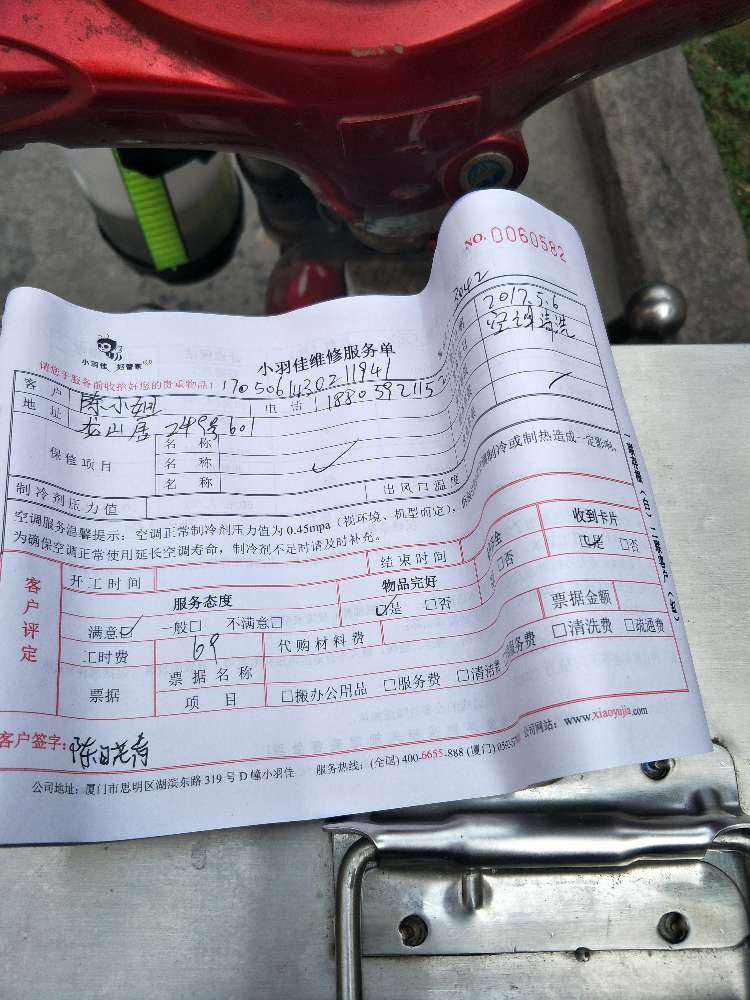 NO. 0060582
小羽佳 好管家
小羽佳维修服务单
请您于服务前收拾好您的贵重物品!
17050614302 11941
3042
2017.5.6
客户 陈小姐 电话
地址 龙山居 249号601
空调清洗
保修项目 名称
名称
名称
制冷剂压力值 出风口温度
空调服务温馨提示：空调正常制冷剂压力值为0.45mpa（视环境、机型而定），制冷或制热造成一定影响。
为确保空调正常使用延长空调寿命，制冷剂不足时请及时补充。
客户评定
开工时间 结束时间 收到卡片
服务态度 物品完好 ☑是 □否
满意☑ 一般□ 不满意□ ☑是 □否 □否
工时费 69 代购材料费 票据金额
票据 票据名称
项目 □搬办公用品 □服务费 □清洁费 服务费 □清洗费 □疏通费
客户签字：陈晓青
公司地址：厦门市思明区湖滨东路319号D幢小羽佳 服务热线：(全国) 400-6655-888 (厦门) 公司网站：www.xiaoyujia.com